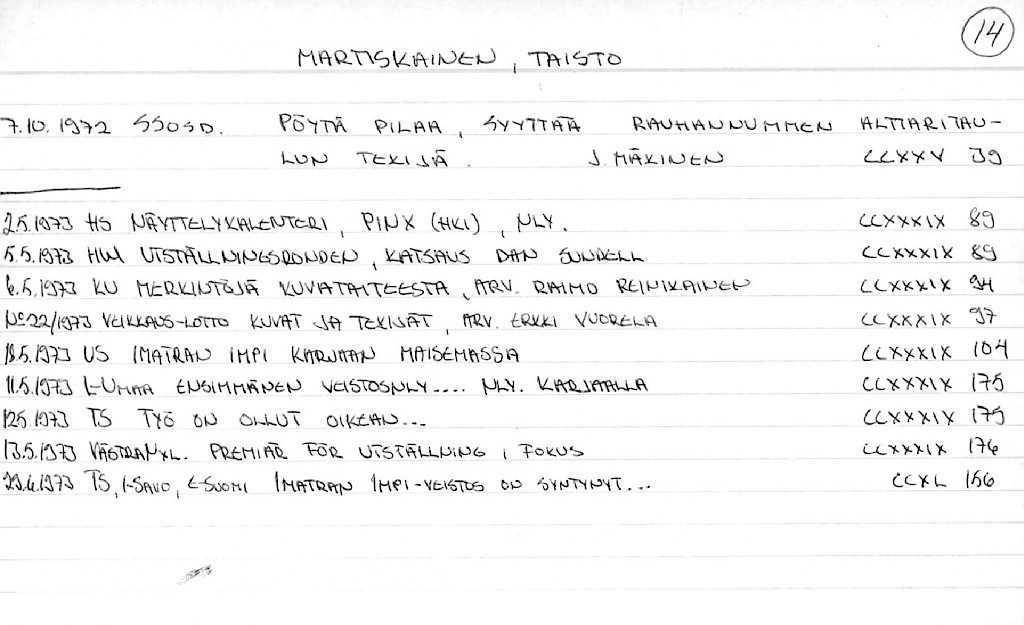 14
MARTISKAINEN, TAISTO
7.10.1972 SSOSD. PÖYTÄ PILAA, SYYTTÄÄ RAUHANNUMMEN ALTTARITAU-
LUN TEKIJÄ. J. MÄKINEN CCXXV 39
2.5.1973 HS NÄYTTELYKALENTERI, PINX (HKI), NLY. CCXXXIX 89
5.5.1973 HBL UTSTÄLLNINGSRONDEN, KATSAUS DAN SUNDELL CCXXXIX 89
6.5.1973 KU MERKINTÖJÄ KUVATAITEESTA, ARV. RAIMO REINIKAINEN CCXXXIX 94
No 22/1973 VEIKKAUS-LOTTO KUVAT JA TEKIJÄT, ARV. ERKKI VUORELA CCXXXIX 97
18.5.1973 US IMATRAN IMPI KARJAAN MAISEMASSA CCXXXIX 104
11.5.1973 L-UMAA ENSIMMÄNEN VEISTOSNLY.... NLY. KARJAALLA CCXXXIX 175
12.5.1973 TS TYÖ ON OLLUT OIKEAN... CCXXXIX 175
13.5.1973 VÄSTRA NYL. PREMIÄR FÖR UTSTÄLLNING I FOKUS CCXXXIX 176
29.6.1973 TS, I-SAVO, E-SUOMI IMATRAN IMPI-VEISTOS ON SYNTYNYT... CCXL 156